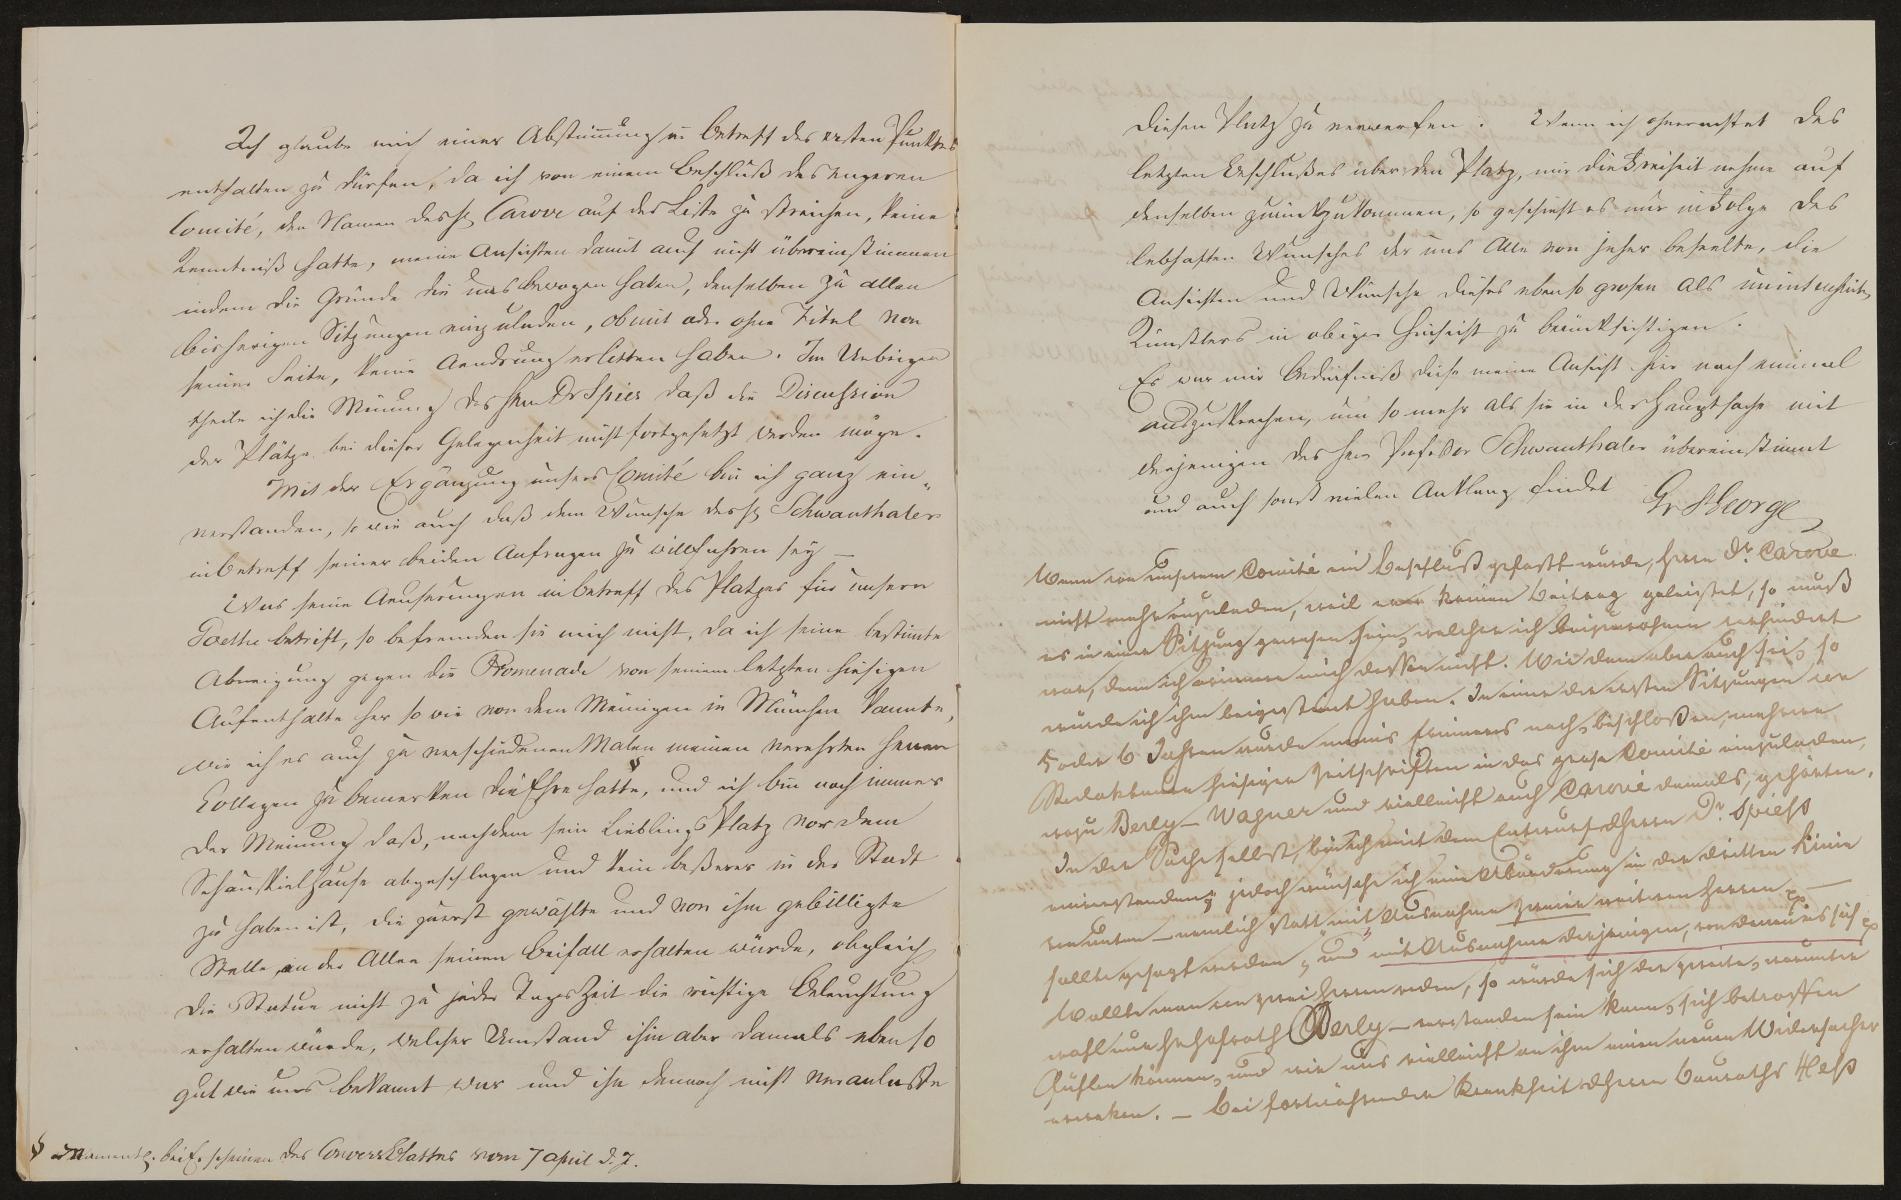 Ich glaube mich einer Abstimmung in Betreff des ersten Punktes
enthalten zu dürfen, da ich von einem Beschluß des engeren
Comité, den Namen des H. Carové auf der Liste zu streichen, keine
Kenntniß hatte, meine Ansichten damit auch nicht übereinstimmen
indem die Gründe die uns bewogen haben, denselben zu allen
bisherigen Sitzungen einzuladen, ob mit oder ohne Titel von
seiner Seite, keine Aendrung erlitten haben. Im Uebrigen
theile ich die Meinung des Hrn Dr Spies daß die Discussion
der Plätze bei dieser Gelegenheit nicht fortgesetzt werden möge.
Mit der Ergänzung unsers Comité bin ich ganz ein-
verstanden, so wie auch daß dem Wunsche des H. Schwanthaler
in Betreff seiner beiden Anfragen zu willfahren sey —
Was seine Aeuserungen in Betreff des Platzes für unsern
Goethe betrift, so befremden sie mich nicht, da ich seine bestimte
Abneigung gegen die Promenade von seinem letzten hiesigen
Aufenthalte her so wie von dem Meinigen in München kannte,
wie ich es auch zu verschiedenen Malen meinen verehrten Herren
Collegen zu bemerken die Ehre hatte, und ich bin noch immer
der Meinung daß, nachdem sein Lieblings Platz vor dem
Schauspielhause abgeschlagen und kein beßerer in der Stadt
zu haben ist, die zuerst gewählte und von ihm gebilligte
Stelle in der Allee seinen Beifall erhalten würde, obgleich
die Statue nicht zu jeder Tages Zeit die richtige Beleuchtung
erhalten würde, welcher Umstand ihm aber damals eben so
gut wie uns bekannt war und ihn dennoch nicht veranlaßte
Namentl. bei Erscheinen des Convers Blattes vom 7 April d. J.
diesen Platz zu verwerfen. Wenn ich ohnerachtet des
letzten Beschlußes über den Platz, mir die Freiheit nehme auf
denselben zurückzukommen, so geschieht es nur in Folge des
lebhaften Wunsches der uns Alle von jeher beseelte, die
Ansichten und Wünsche dieses eben so grosen als
Künstlers in obiger Hinsicht zu berücksichtigen.
Es war mir Bedürfniß diese meine Ansicht hier noch einmal
auszusprechen, um so mehr als sie in der Hauptsache mit
derjenigen des Hrn Professor Schwanthaler übereinstimmt
und auch sonst vielen Anklang findet
Gr. St George
Wenn von unserem Comité ein Beschluß gefaßt wurde, Herrn Dr. Carové
nicht mehr einzuladen, weil er keinen Beitrag geleistet, so muß
es in einer Sitzung gewesen sein, welcher ich beizuwohnen verhindert
war, denn ich erinnere mich dessen nicht. Wie dem aber auch sei, so
würde ich ihm beigestimt haben. In einer der ersten Sitzungen vor
5 oder 6 Jahren wurde meines Erinnerns nach, beschloßen, mehrere
Redakteure hiesiger Zeitschriften in das grose Comité einzuladen,
wozu Berly - Wagner und vielleicht auch Carové damals, gehörten.
In der Sache selbst, bin ich mit dem Entwurf des Herrn Dr. Spiess
einverstanden; jedoch wünsche ich eine Abänderung in der dritten Linie
von unten — nemlich statt mit Ausnahme zweier weiteren Herren —
sollte gesagt werden, „und mit Ausnahme derjenigen, von denen es sich
Wollte man von zwei Herren reden, so würde sich der zweite, worunter
wohl nur Hr Hofrath Berly — verstanden sein kann, sich betroffen
fühlen können, und wir uns vielleicht an ihm einen neuen Widersacher
erwecken. — Bei fortwährender Krankheit des Herrn Bauraths Hess